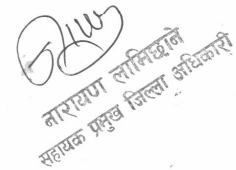 नारायण लामिछाने
सहायक प्रमुख जिल्ला अधिकारी